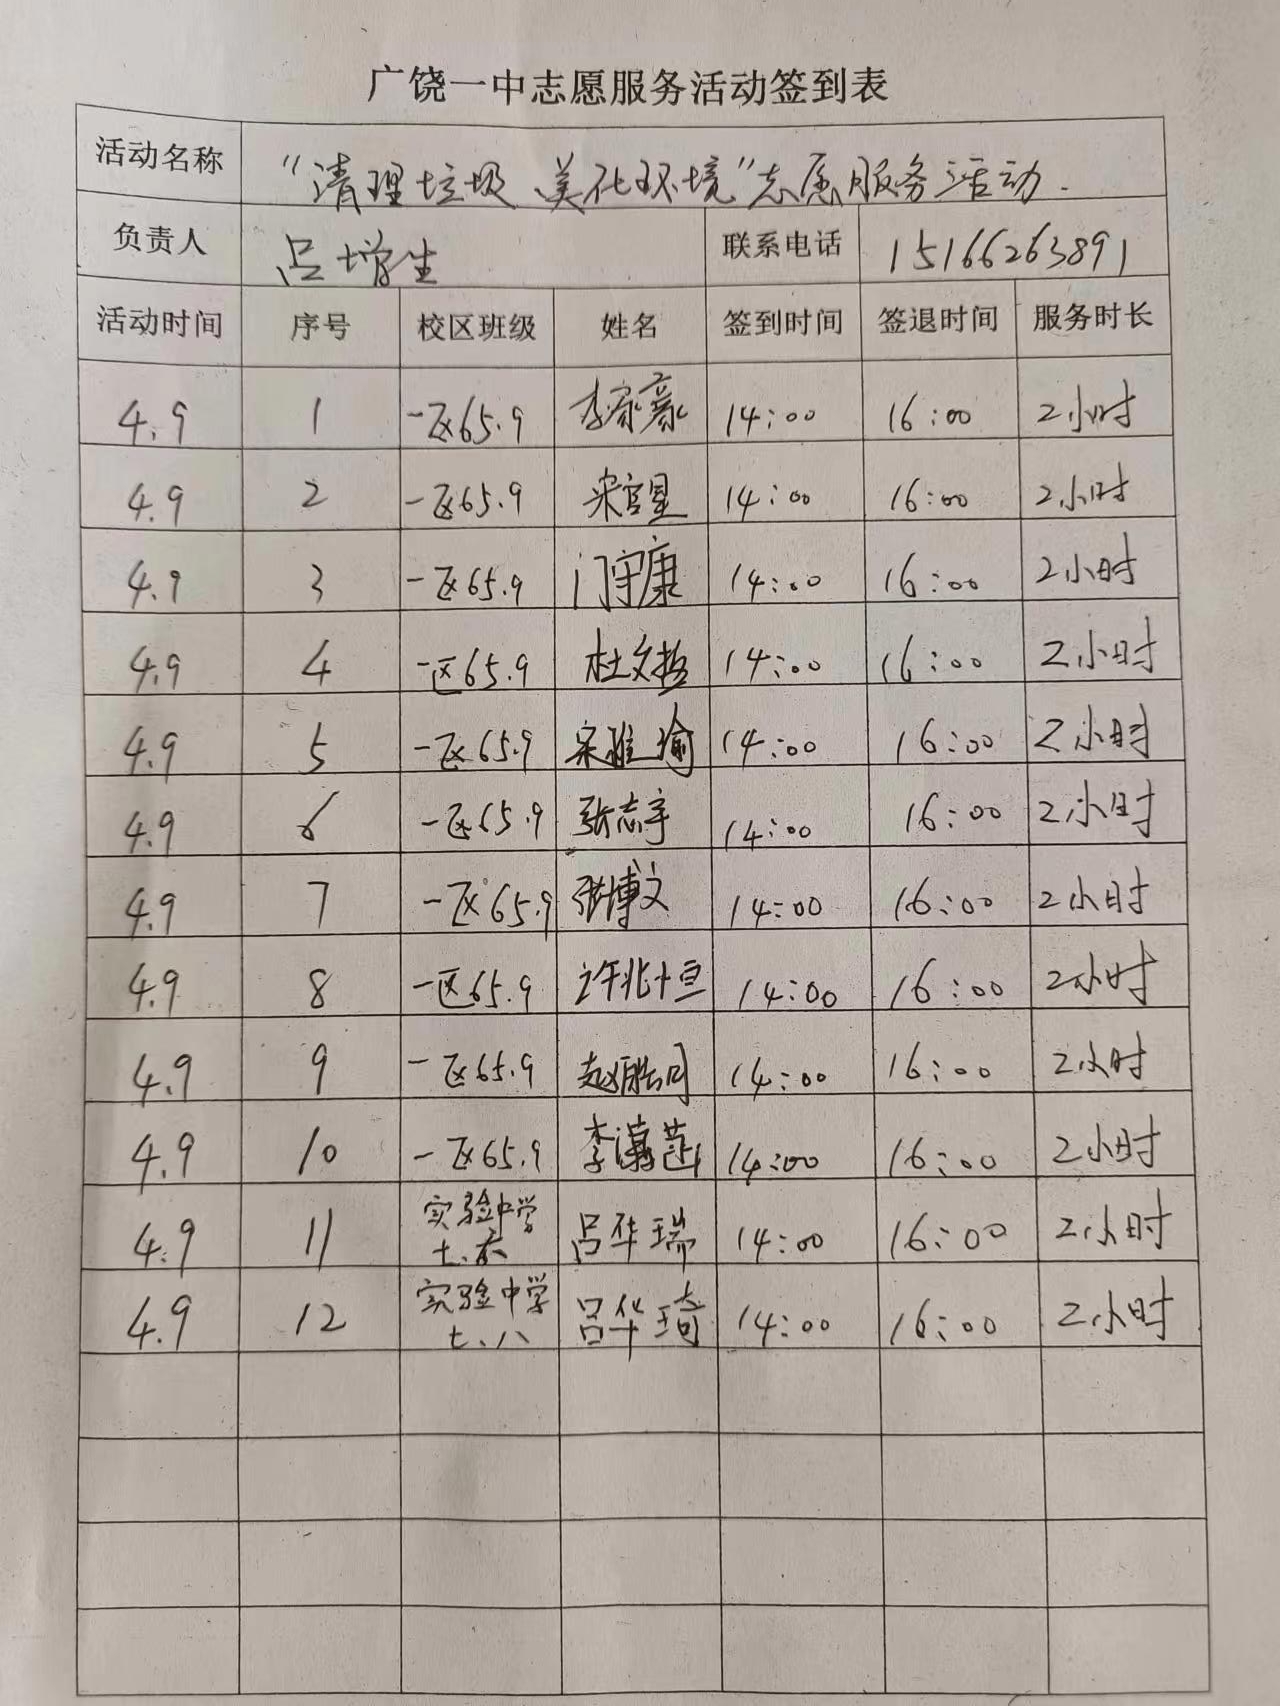 广饶一中志愿服务活动签到表
活动名称 “清理垃圾 美化环境”志愿服务活动.
负责人 吕增生 联系电话 15166263891
活动时间 序号 校区班级 姓名 签到时间 签退时间 服务时长
4.9 1 一区65.9 李家豪 14:00 16:00 2小时
4.9 2 一区65.9 宋官星 14:00 16:00 2小时
4.9 3 一区65.9 门守康 14:00 16:00 2小时
4.9 4 一区65.9 杜文哲 14:00 16:00 2小时
4.9 5 一区65.9 宋雅瑜 14:00 16:00 2小时
4.9 6 一区65.9 张志宇 14:00 16:00 2小时
4.9 7 一区65.9 张博文 14:00 16:00 2小时
4.9 8 一区65.9 许兆恒 14:00 16:00 2小时
4.9 9 一区65.9 14:00 16:00 2小时
4.9 10 一区65.9 14:00 16:00 2小时
4.9 11 实验中学 七.六 吕华瑞 14:00 16:00 2小时
4.9 12 实验中学 七.八 吕华琦 14:00 16:00 2小时